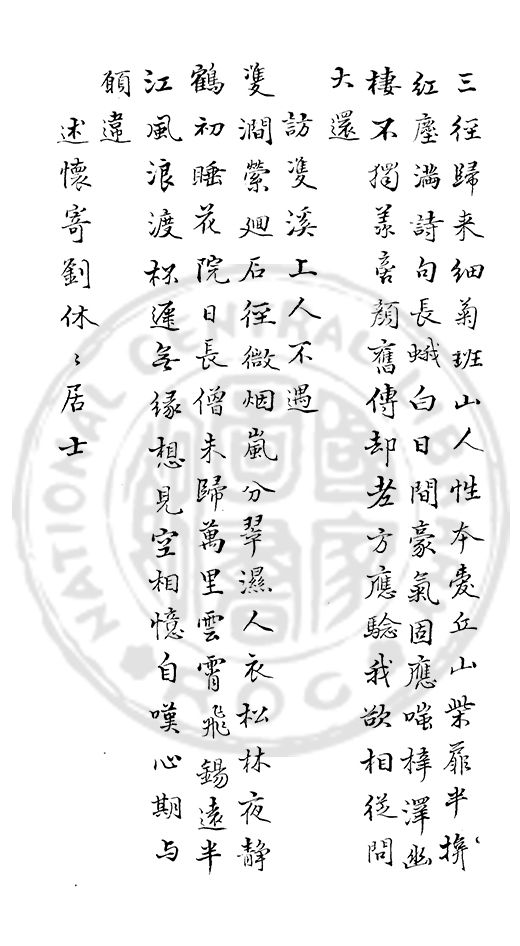 三徑歸来細菊班山人性本愛丘山柴扉半掩
紅塵滿詩句長蛾白日間豪氣固應嗤梓澤幽
棲不獨羨商顏舊傳却老方應驗我欲相從問
大還
訪雙溪上人不遇
雙澗縈廻石徑微烟嵐分翠濕人衣松林夜靜
鶴初睡花院日長僧未歸萬里雲霄飛錫遠半
江風浪渡杯遲無緣想見空相憶自嘆心期与
願違
述懷寄劉休々居士
NATIONAL CENTRAL LIBRARY R.O.C.